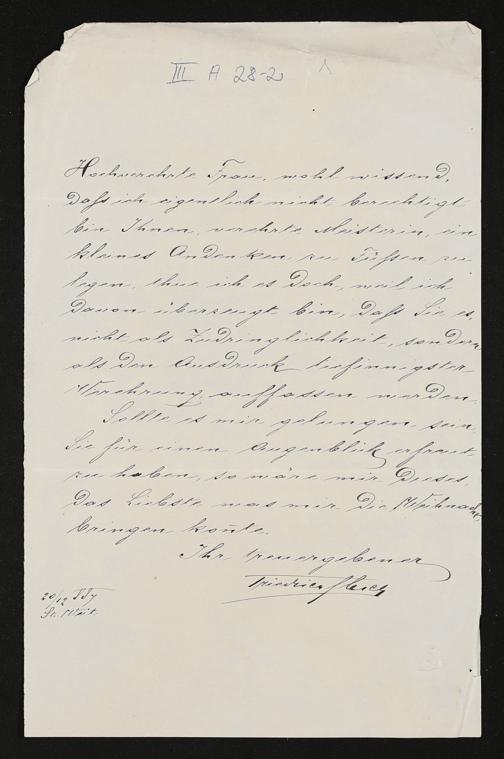 III A 28-2
Hochverehrte Frau, wohl wissend,
daß ich eigentlich nicht berechtigt
bin Ihnen, verehrte Meisterin, ein
kleines Andenken zu Füßen zu
legen, thue ich es doch, weil ich
davon überzeugt bin, daß Sie es,
nicht als Zudringlichkeit, sondern
als den Ausdruck tiefinnigster
Verehrung auffassen werden.
Sollte es mir gelungen sein,
Sie für einen Augenblick erfreut
zu haben, so wäre mir dieses,
das Liebste was mir die
bringen kon̄te.
Ihr treuergebener
Friedrich
20/12
St. Veit.